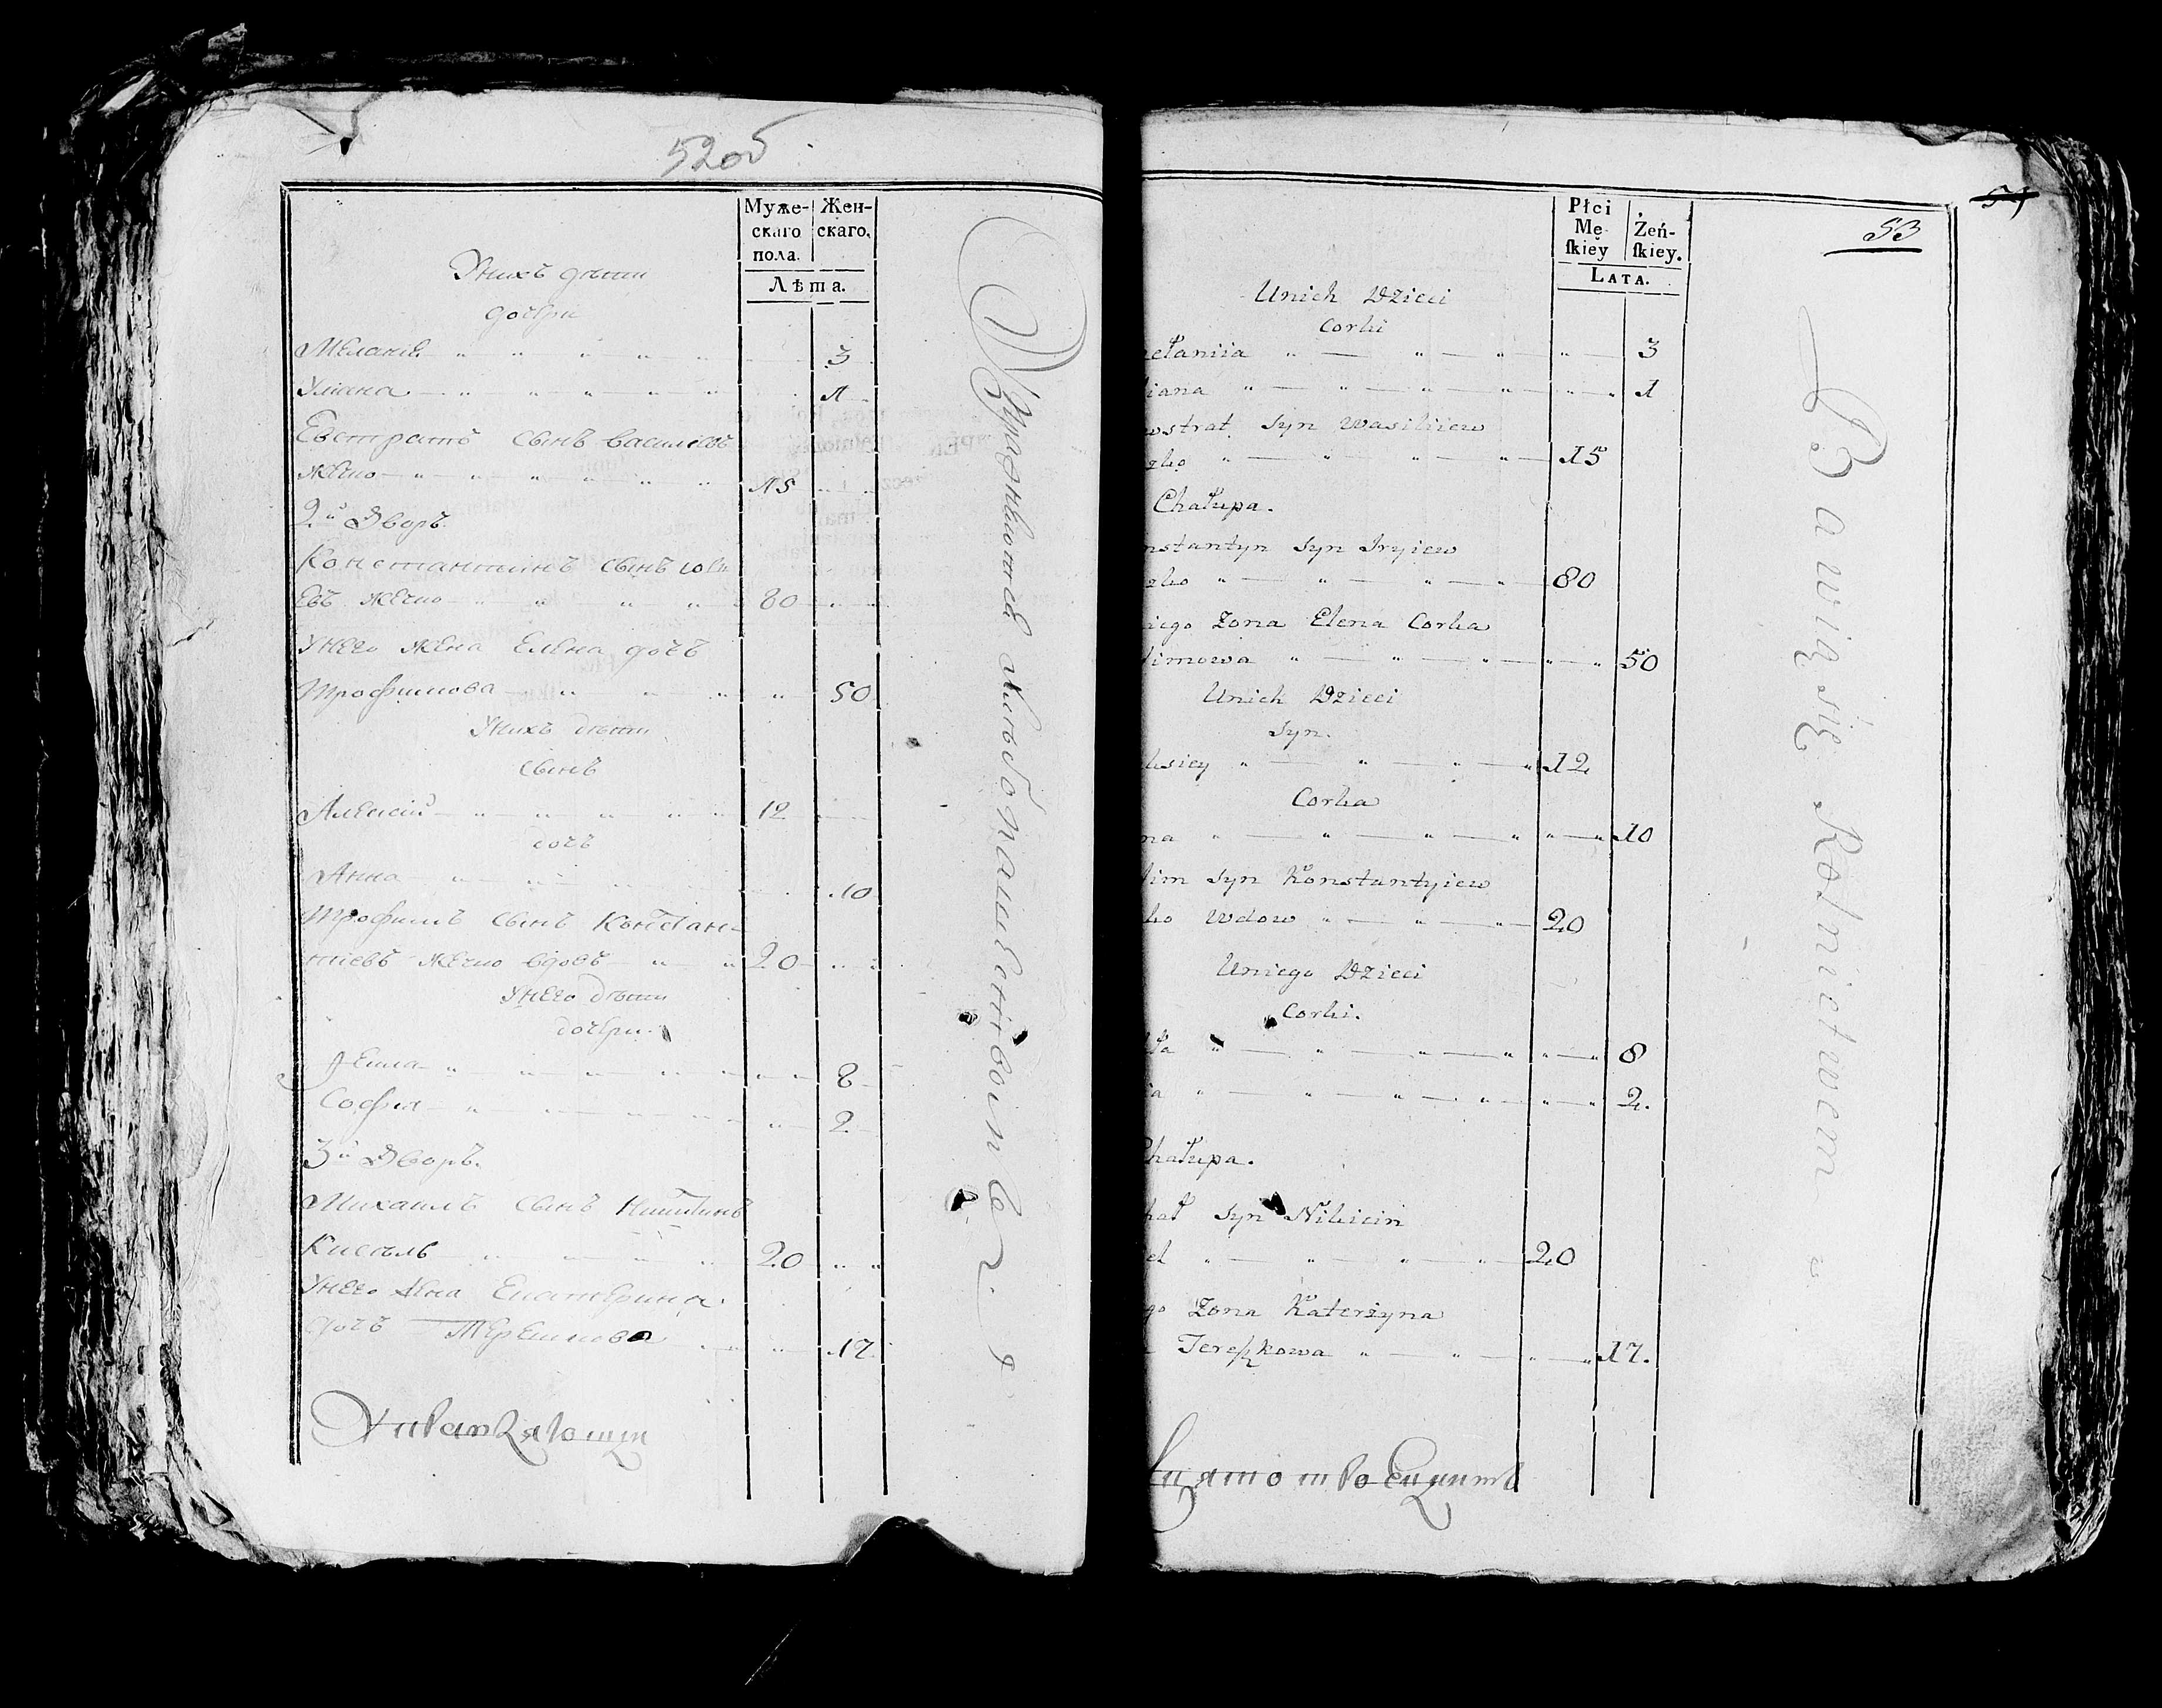 52об
Муже-
скаго
пола.
Жен-
скаго.
Лѣта.
Унихъ дѣти
дочери
Меланія 3
Уліана 1
Евстратъ сынъ василіевъ
жечко 15
2й Дворъ.
Константинъ сынъ
евъ жечко 80
Унего жена Елена дочь
Трофимова 50
Унихъ дѣти
сынъ
Алексій 12
дочь
Анна 10
Трофимъ сынъ Констан-
тіевъ жечко вдовъ 20
Унего дѣти
дочери
8
Софія 2
3й Дворъ.
Михаилъ сынъ Никитинъ
Кисель 20
Унего жена Екатерина
дочь Терешкова 17
Упражняются хлебопашенствомъ
53
Płci
Mę-
ſkiey
Żeń-
ſkiey.
LATA.
Unich Dzieci
Corki
etaniia 3
iana 1
wstrat Syn Wasiliiew
zko 15
Chałupa.
nstantyn Syn Iryiew
zko 80
iego Zona Elena Corka
fimowa 50
Unich Dzieci
Syn.
ksiey 12
Corka
na 10
fim Syn Konstantyiew
ko Wdow 20
Uniego Dzieci
Corki.
ła 8
ia 2.
Chałupa.
hał Syn Nikicin
el 20
go Zona Katerżyna
Tereszkowa 17.
Bawią się Rolnictwem